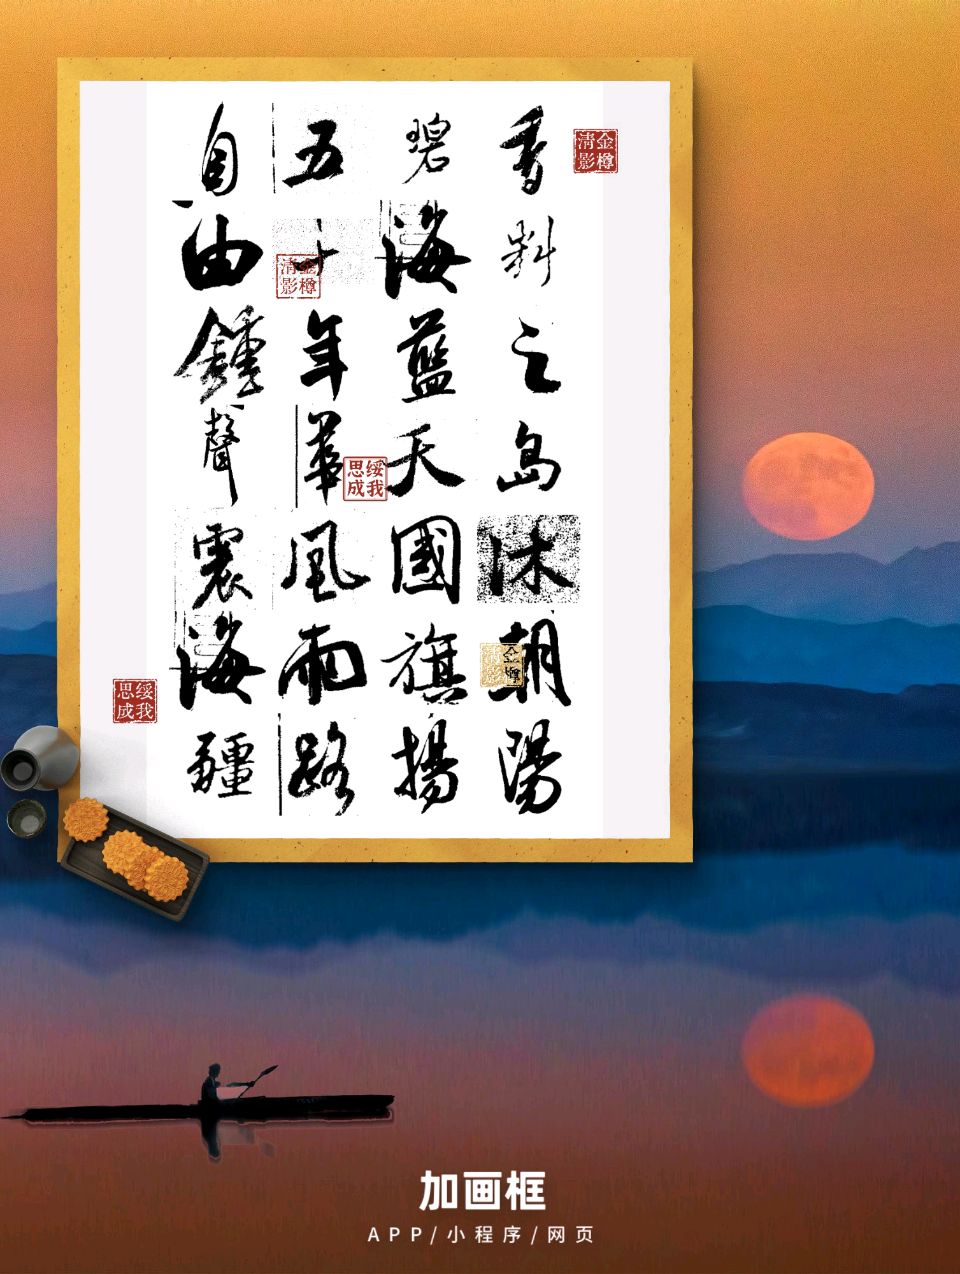 香料之岛沐朝陽
碧海藍天國旗揚
五十年華風雨路
自由鍾聲震海疆
金樽清影
金樽清影
绥我思成
金樽清影
绥我思成
加画框
APP/小程序/网页